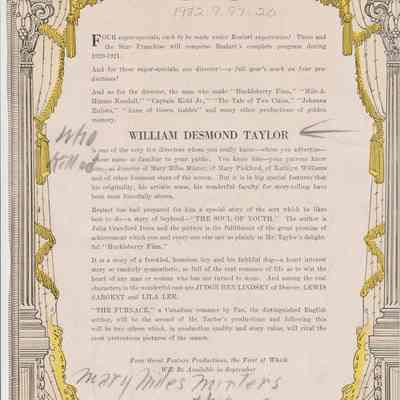 1982.9.97.20
FOUR super-specials, each to be made under Realart supervision! These and
the Star Franchise will comprise Realart's complete program during
1920-1921.
And for these super-specials one director—a full year's work on four pro-
ductions!
And as for the director, the man who made "Huckleberry Finn," "Mile-A-
Minute Kendall," "Captain Kidd Jr.," "The Tale of Two Cities," "Johanna
Enlists," "Anne of Green Gables" and many other productions of golden
memory.
Who
Killed
WILLIAM DESMOND TAYLOR
is one of the very few directors whom you really know—whom you advertise—
whose name is familiar to your public. You know him—your patrons know
him, as director of Mary Miles Minter, of Mary Pickford, of Kathlyn Williams
and of other luminous stars of the screen. But it is in big special features that
his originality, his artistic sense, his wonderful faculty for story-telling have
been most forcefully shown.
Realart has had prepared for him a special story of the sort which he likes
best to do—a story of boyhood—"THE SOUL OF YOUTH." The author is
Julia Crawford Ivers and the picture is the fulfillment of the great promise of
achievement which you and every one else saw so plainly in Mr. Taylor's delight-
ful "Huckleberry Finn."
It is a story of a freckled, homeless boy and his faithful dog—a heart interest
story so tenderly sympathetic, so full of the zest romance of life as to win the
heart of any man or woman who has not turned to stone. And among the real
characters in the wonderful cast are JUDGE BEN LINDSEY of Denver, LEWIS
SARGENT and LILA LEE.
"THE FURNACE," a Canadian romance by Pan, the distinguished English
author, will be the second of Mr. Taylor's productions and following this
will be two others which, in production quality and story value, will rival the
most pretentious pictures of the season.
Four Great Feature Productions, the First of Which
Will Be Available in September
Mary Miles Minters